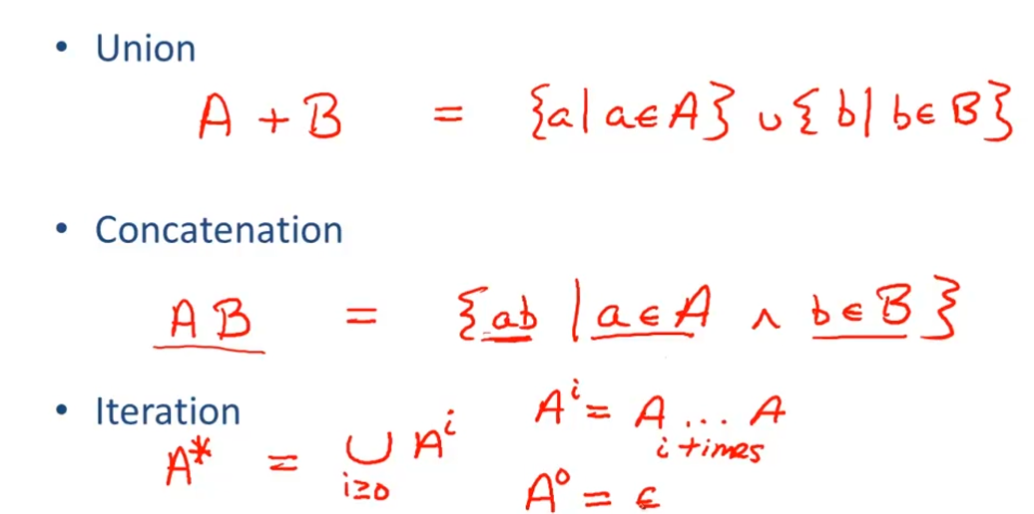 • Union
A + B = {a | a ∈ A} ∪ { b | b ∈ B}
• Concatenation
A B = {ab | a ∈ A ∧ b ∈ B }
• Iteration
A* = ∪ Aⁱ
i≥0
Aⁱ = A ... A
i times
A⁰ = ϵ